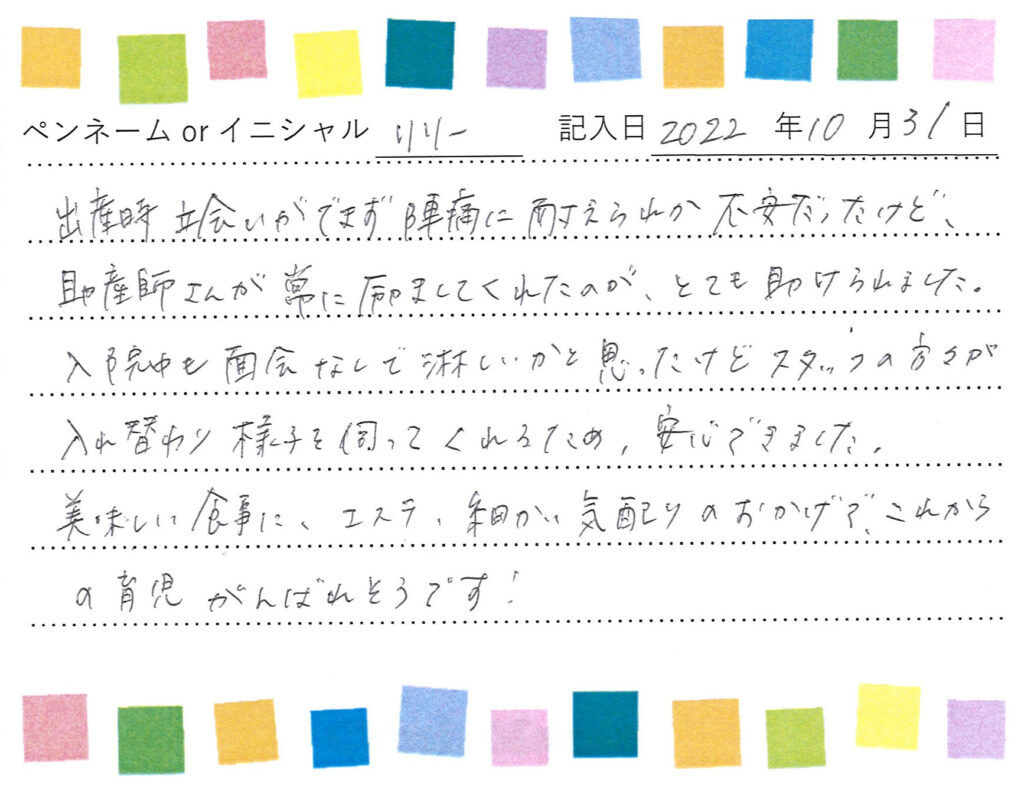 ペンネーム or イニシャル リリー 記入日 2022 年 10 月 31 日
出産時 立会いができず 陣痛に耐えられるか 不安だったけど、
助産師さんが常に励ましてくれたのが、とても助けられました。
入院中も面会なしで淋しいかと思ったけどスタッフの方々が
入れ替わり様子を伺ってくれるため、安心できました。
美味しい食事に、エステ、細かい気配りのおかげで、これから
の育児がんばれそうです!